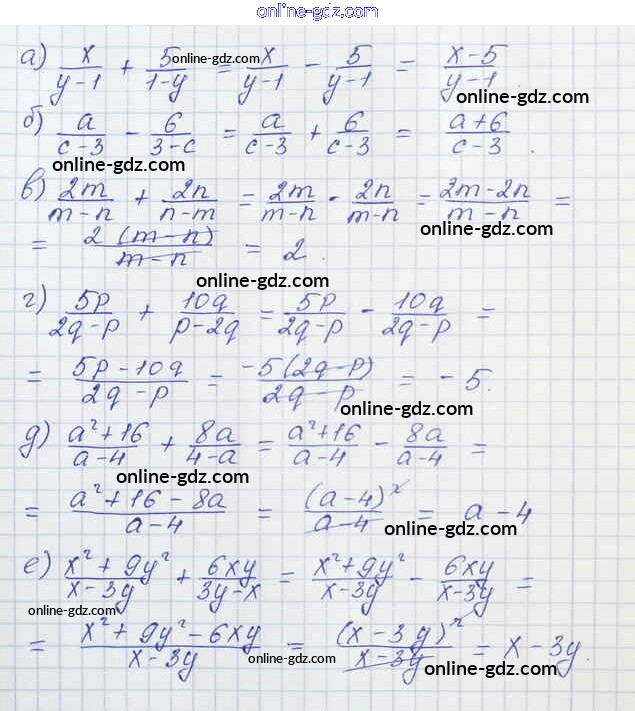 online-gdz.com
а) x/(y-1) + 5/(1-y) = x/(y-1) - 5/(y-1) = (x-5)/(y-1).
online-gdz.com
online-gdz.com
б) a/(c-3) - 6/(3-c) = a/(c-3) + 6/(c-3) = (a+6)/(c-3).
online-gdz.com
в) 2m/(m-n) + 2n/(n-m) = 2m/(m-n) - 2n/(m-n) = (2m-2n)/(m-n) =
online-gdz.com
= 2(m-n)/(m-n) = 2.
online-gdz.com
г) 5p/(2q-p) + 10q/(p-2q) = 5p/(2q-p) - 10q/(2q-p) =
= (5p-10q)/(2q-p) = -5(2q-p)/(2q-p) = -5.
online-gdz.com
д) (a²+16)/(a-4) + 8a/(4-a) = (a²+16)/(a-4) - 8a/(a-4) =
online-gdz.com
= (a²+16-8a)/(a-4) = (a-4)²/(a-4) = a-4
online-gdz.com
е) (x²+9y²)/(x-3y) + 6xy/(3y-x) = (x²+9y²)/(x-3y) - 6xy/(x-3y) =
online-gdz.com
online-gdz.com
= (x²+9y²-6xy)/(x-3y) = (x-3y)²/(x-3y) = x-3y.
online-gdz.com
online-gdz.com